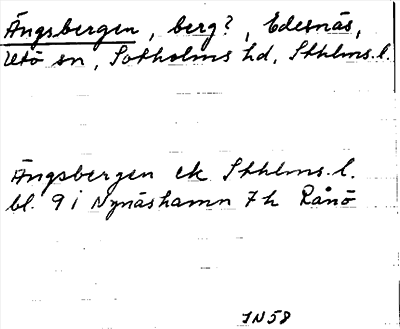 Ängsbergen, berg?, Edesnäs,
Utö sn, Sotholms hd, Sthlms. l.
Ängsbergen ek Sthlms. l.
bl. 9 i Nynäshamn 7h Rånö
IN58